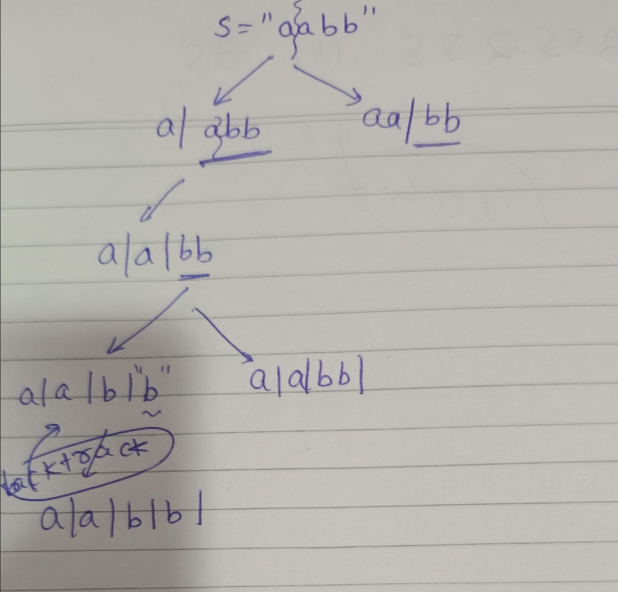 S = "aabb"
a| abb
aa| bb
a|a|bb
a|a|b|"b"
a|a|bb|
backtrack
a|a|b|b|